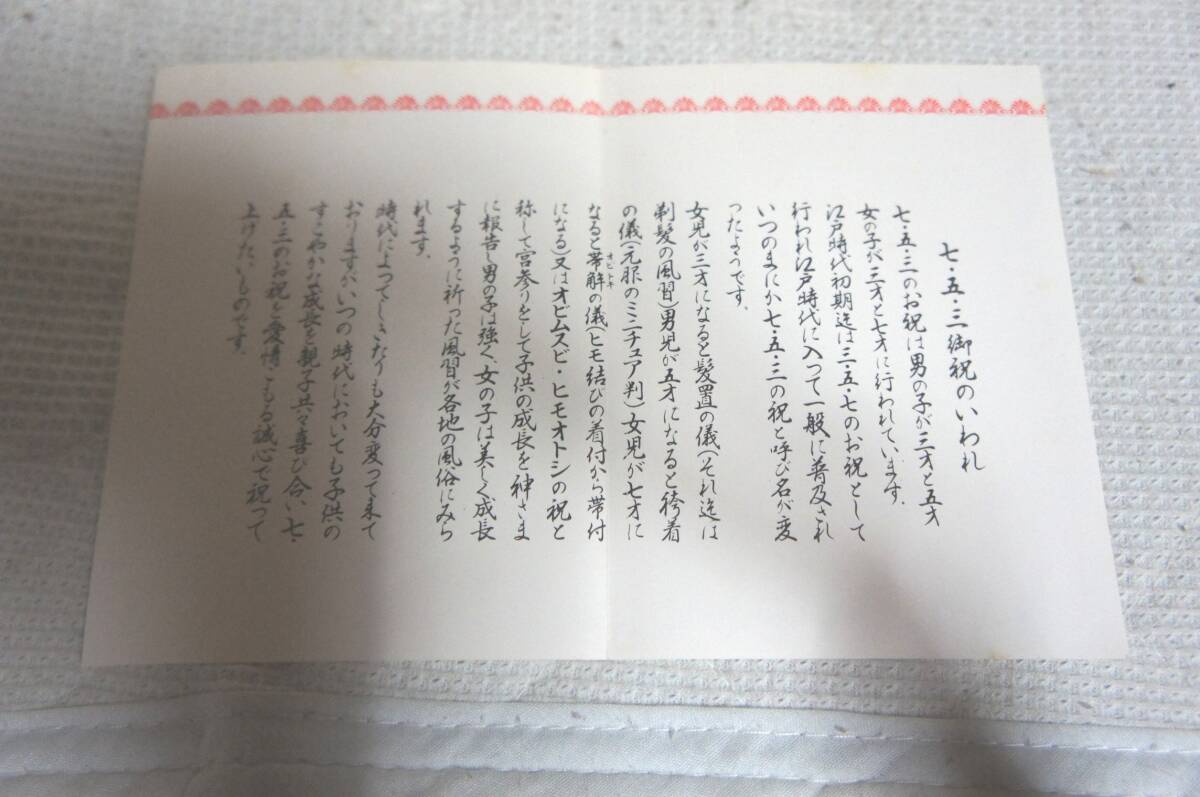 七・五・三御祝のいわれ
七・五・三のお祝は男の子が三才と五才
女の子が三才と七才に行われています。
江戸時代初期迄は三・五・七のお祝として
行われ江戸時代に入って一般に普及され
いつのまにか七・五・三の祝と呼び名が変
ったようです。
女児が三才になると髪置の儀(それ迄は
剃髪の風習)男児が五才になると袴着
の儀(元服のミニチュア判)女児が七才に
なると帯解の儀(ヒモ結びの着付から帯付
オビトキ
になる)又はオビムスビ・ヒモオトシの祝と
称して宮参りをして子供の成長を神さま
に報告し男の子は強く、女の子は美しく成長
するように祈った風習が各地の風俗にみら
れます。
時代によってしきたりも大分変って来て
おりますがいつの時代においても子供の
すこやかな成長を親子共々喜び合い、七・
五・三のお祝を愛情こもる誠心で祝って
上げたいものです。